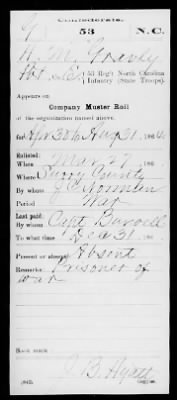 Confederate.
G 53 N.C.
H. M. Gravly
Pvt, Co. E, 53 Reg't North Carolina
Infantry (State Troops).
Appears on
Company Muster Roll
of the organization named above,
for Apr 30 to Aug 31, 1864.
Enlisted:
When Mar 27, 186
Where Surry County
By whom J C Norman
Period War
Last paid:
By whom Capt
To what time Dec 31, 186
Present or absent Absent
Remarks: Prisoner of
war
Book mark:
J. B. Hyatt
(642) Copyist.